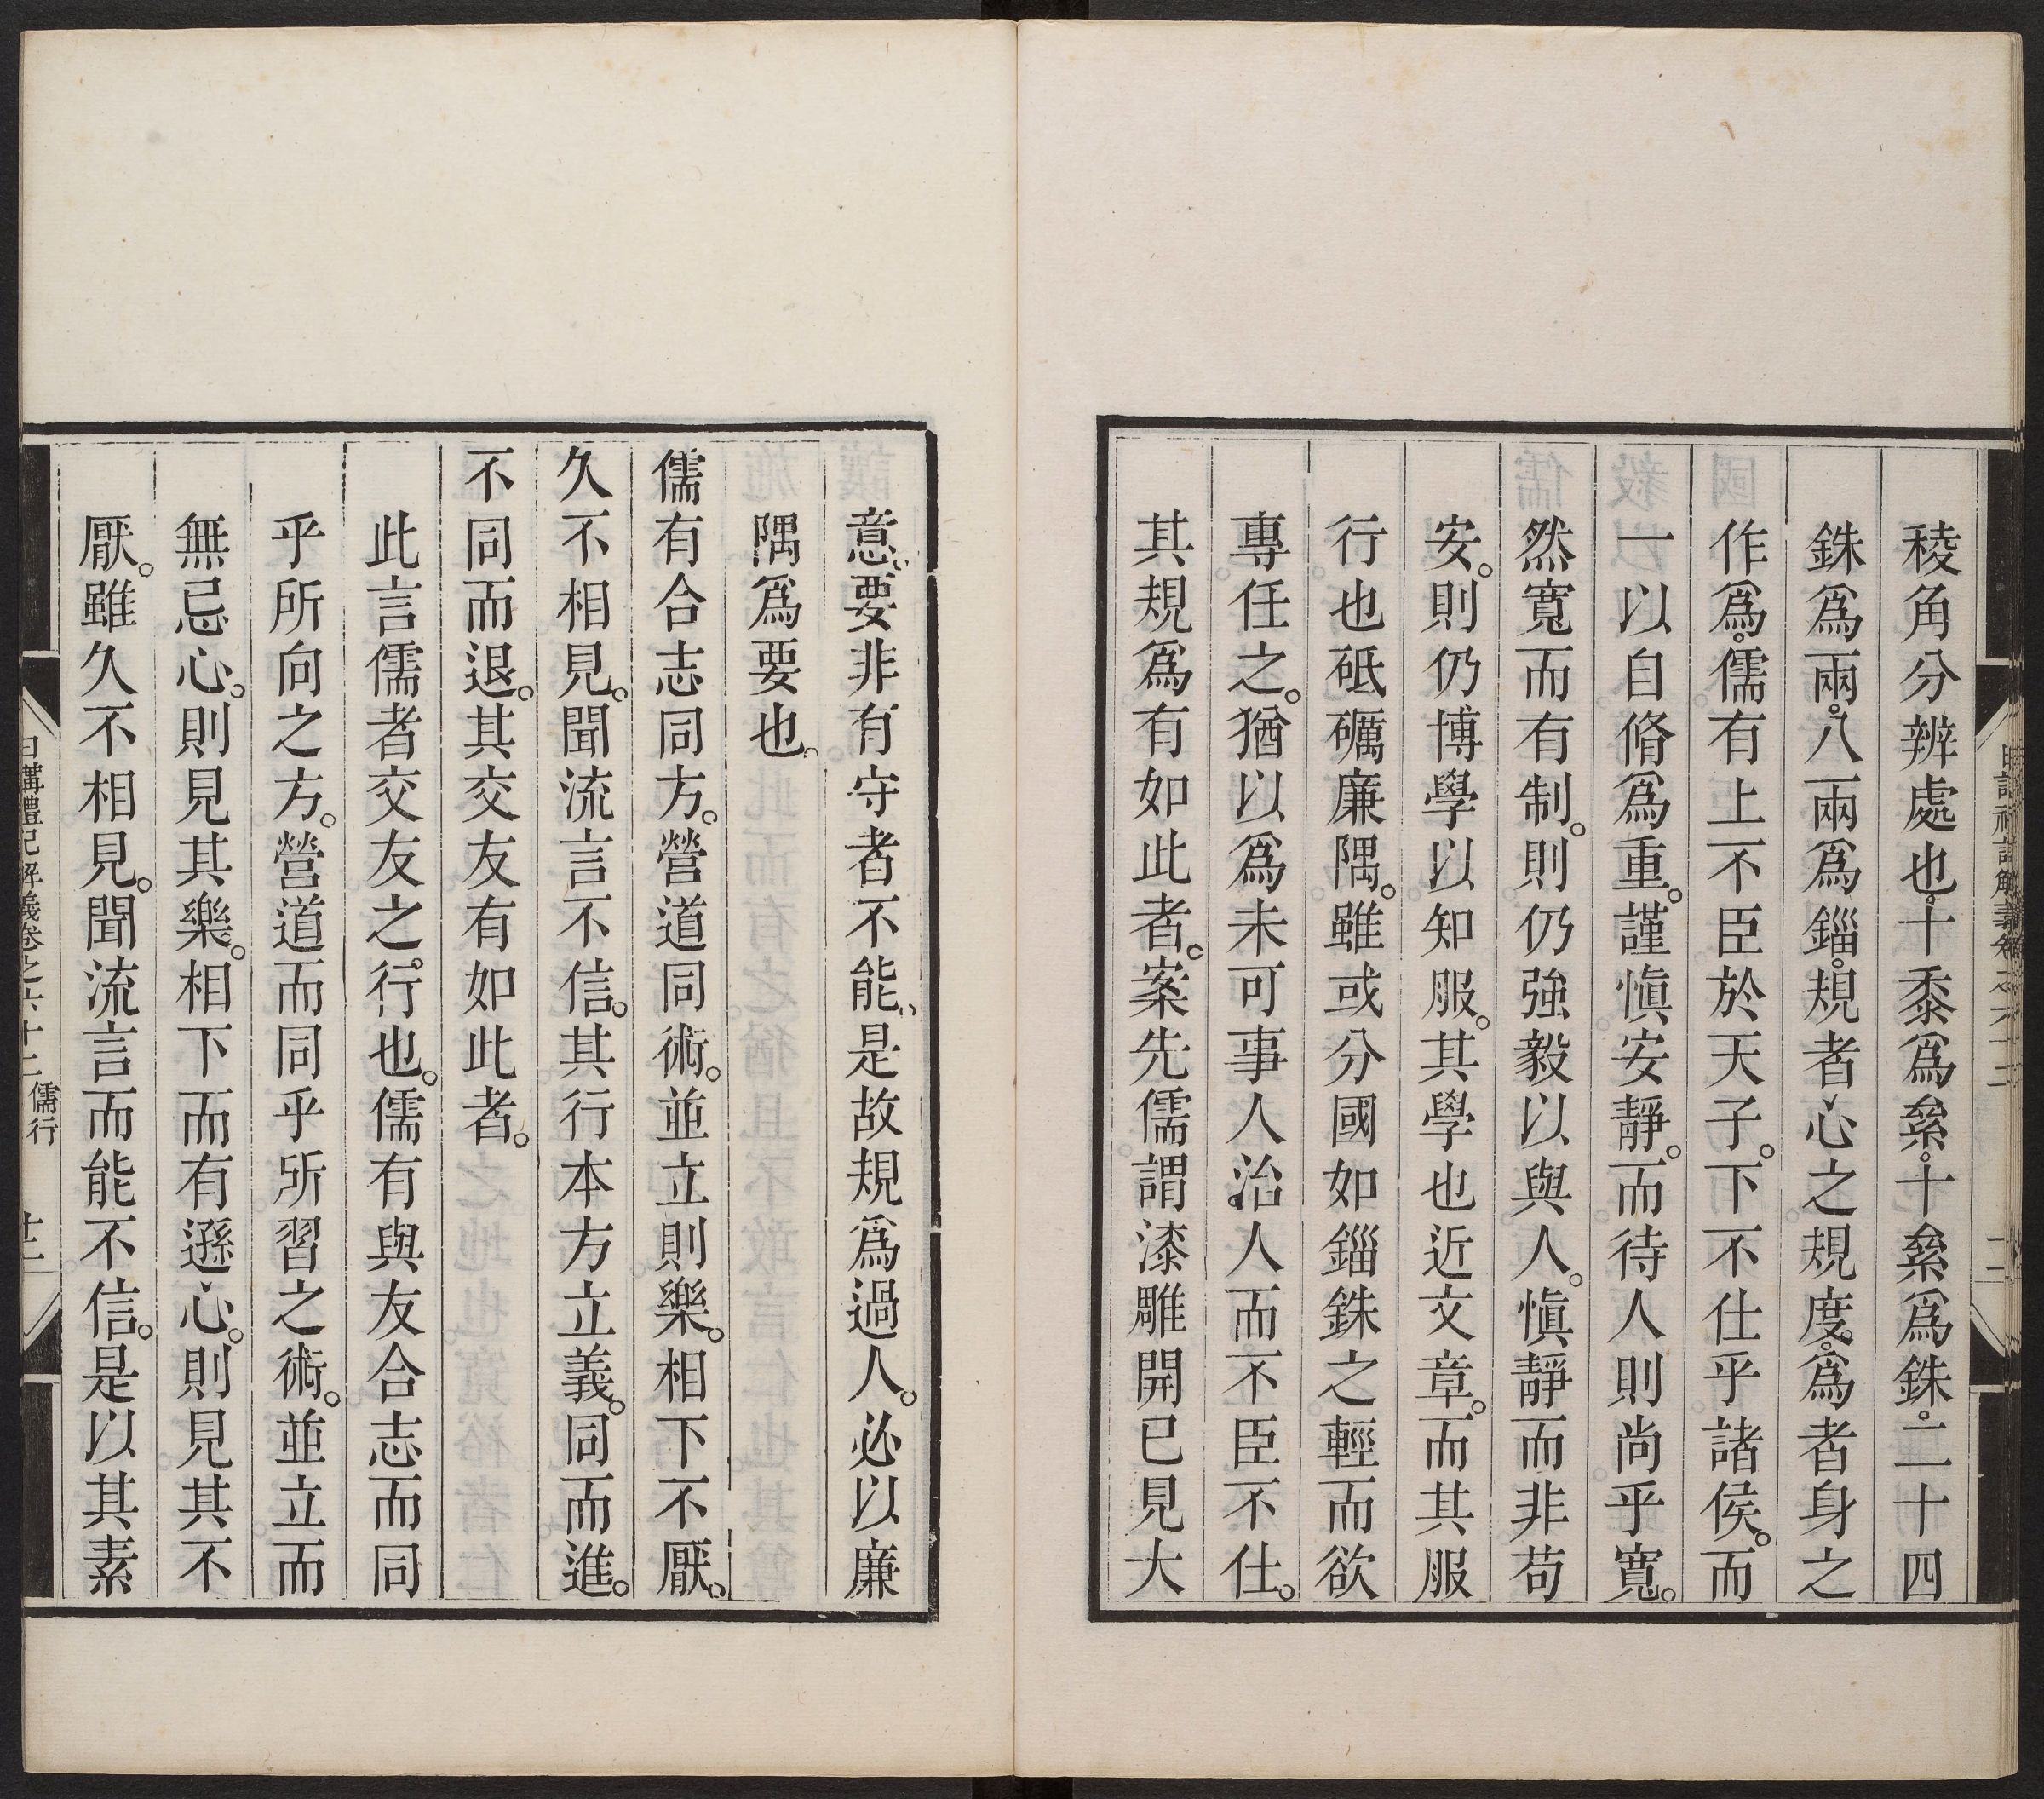 稜角分辨處也。十黍爲絫。十絫爲銖。二十四
銖爲兩。八兩爲錙。規者心之規度。爲者身之
作爲。儒有上不臣於天子。下不仕乎諸侯。而
一以自脩爲重。謹愼安靜。而待人則尚乎寬。
然寬而有制。則仍強毅以與人。愼靜而非苟
安。則仍博學以知服。其學也近文章。而其服
行也砥礪廉隅。雖或分國如錙銖之輕而欲
專任之。猶以爲未可事人治。人而不臣不仕。
其規爲有如此者。案先儒謂漆雕開已見大
意。要非有守者不能。是故規爲過人。必以廉
隅爲要也。
儒有合志同方。營道同術。並立則樂。相下不厭。
久不相見。聞流言不信。其行本方立義。同而進。
不同而退。其交友有如此者。
此言儒者交友之行也。儒有與友合志而同
乎所向之方。營道而同乎所習之術。並立而
無忌心。則見其樂。相下而有遜心。則見其不
厭。雖久不相見。聞流言而能不信。是以其素
日講禮記解義卷之六十二 儒行 廿二